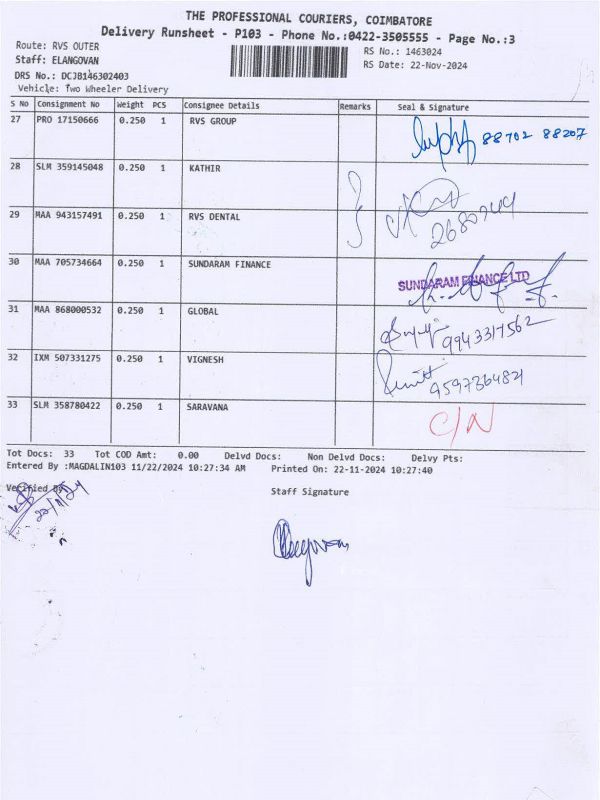 THE PROFESSIONAL COURIERS, COIMBATORE
Delivery Runsheet - P103 - Phone No.:0422-3505555 - Page No.:3
Route: RVS OUTER
RS No.: 1463024
Staff: ELANGOVAN
RS Date: 22-Nov-2024
DRS No.: DCJB146302403
Vehicle: Two Wheeler Delivery
S No Consignment No Weight PCS Consignee Details Remarks Seal & Signature
27 PRO 17150666 0.250 1 RVS GROUP 88702 88207
28 SLM 359145048 0.250 1 KATHIR
29 MAA 943157491 0.250 1 RVS DENTAL
30 MAA 705734664 0.250 1 SUNDARAM FINANCE SUNDARAM FINANCE LTD
31 MAA 868000532 0.250 1 GLOBAL 9943317562
32 IXM 507331275 0.250 1 VIGNESH 9597364821
33 SLM 358780422 0.250 1 SARAVANA C/N
Tot Docs: 33 Tot COD Amt: 0.00 Delvd Docs: Non Delvd Docs: Delvy Pts:
Entered By :MAGDALIN103 11/22/2024 10:27:34 AM Printed On: 22-11-2024 10:27:40
Verified By
22/11/24
Staff Signature